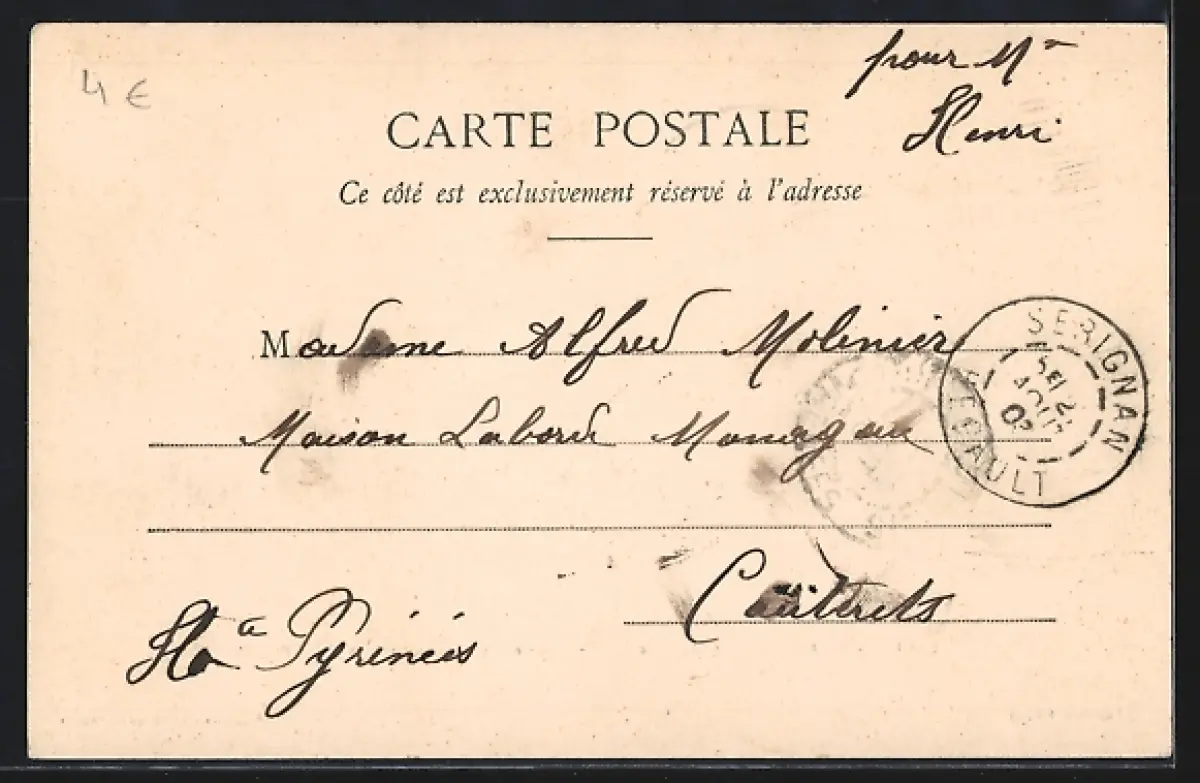 4 €
pour Mr
Henri
CARTE POSTALE
Ce côté est exclusivement réservé à l'adresse
Madame Alfred Molinier
Maison Laborde
Cauterets
Htes Pyrénées
SERIGNAN
AOUT
03
HERAULT